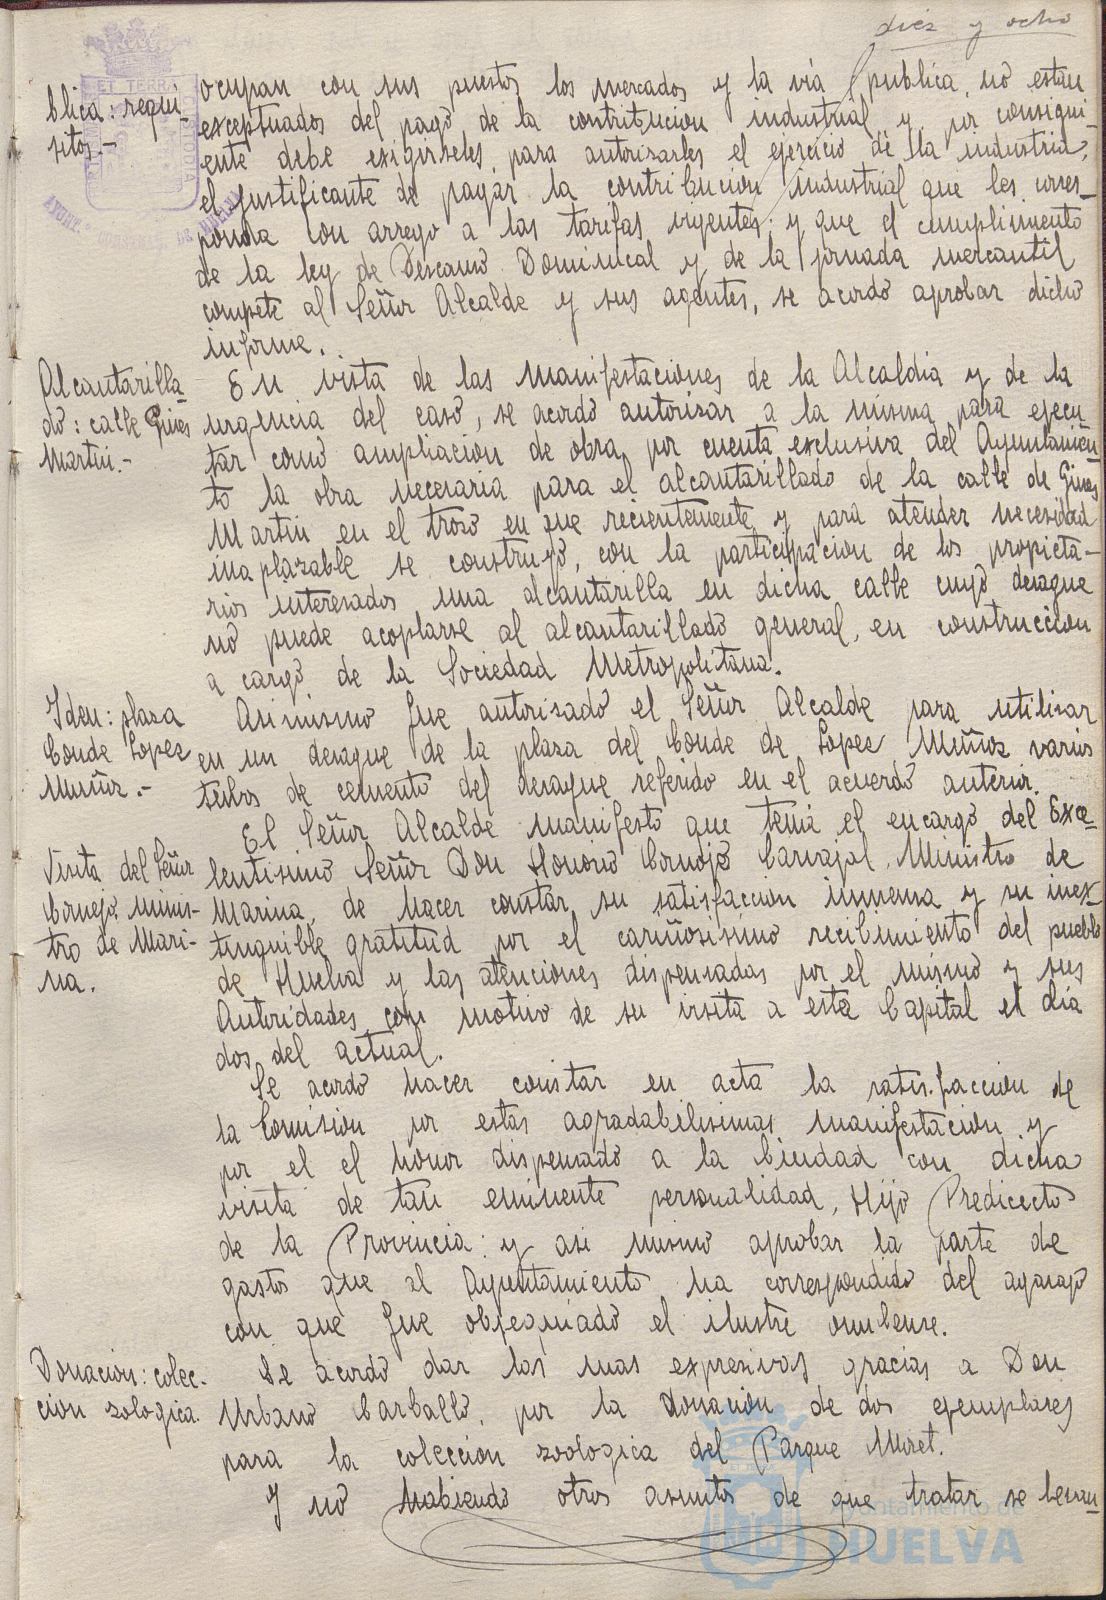 diez y ocho
blica: requi-
sitos.-
ocupan con sus puestos los mercados y la via publica, no estan
exceptuados del pago de la contritucion industrial y por consigui-
ente debe exigirseles, para autorizarles el ejercicio de la industria,
el justificante de pagar la contribucion industrial que les corres-
ponda con arreyo a las tarifas vigentes; y que el cumplimento
de la ley de Descanso Dominical y de la jornada mercantil
compete al Señor Alcalde y sus agentes, se acordó aprobar dicho
informe.
Alcantarilla-
do: calle Gines
Martin.-
En vista de las manifestaciones de la Alcaldia y de la
urgencia del caso, se acordó autorizar a la misma para ejecu-
tar como ampliacion de obra, por cuenta exclusiva del Ayuntamien-
to la obra necesaria para el alcantarillado de la calle de Gines
Martin en el trozo en que recientemente y para atender necesidad
inaplazable se construyó, con la participacion de los propieta-
rios interesados una alcantarilla en dicha calle cuyo desague
no puede acoplarse al alcantarillado general, en construccion
a cargo de la Sociedad Metropolitana.
Iden: plaza
Conde Lopez
Muñoz.-
Asi mismo fue autorizado el Señor Alcalde para utilizar
en un desague de la plaza del Conde de Lopez Muñoz varios
tubos de cemento del desague referido en el acuerdo anterior.
Visita del Señor
Cornejo, minis-
tro de Mari-
na.
El Señor Alcalde manifestó que tenia el encargo del Exce-
lentisimo Señor Don Honorio Cornejo Carvajal, Ministro de
Marina, de hacer constar su satisfaccion inmensa y su inex-
tinguible gratitud por el cariñosisimo recibimiento del pueblo
de Huelva y las atenciones dispensadas por el mismo y sus
Autoridades con motivo de su visita a esta Capital el dia
dos del actual.
Se acordó hacer constar en acta la satisfaccion de
la Comision por estas agradabilisimas manifestacion y
por el el honor dispensado a la Ciudad con dicha
visita de tan eminente personalidad, Hijo Predilecto
de la Provincia: y asi mismo aprobar la parte de
gastos que al Ayuntamiento ha correspondido del agasajo
con que fue obsequiado el ilustre onubense.
Donacion: colec-
cion zologica.
Se acordó dar las mas expresivas gracias a Don
Urbano Carballo, por la donacion de dos ejemplares
para la coleccion zoologica del Parque Moret.
Y no habiendo otros asuntos de que tratar se levan-
Ayuntamiento de
HUELVA